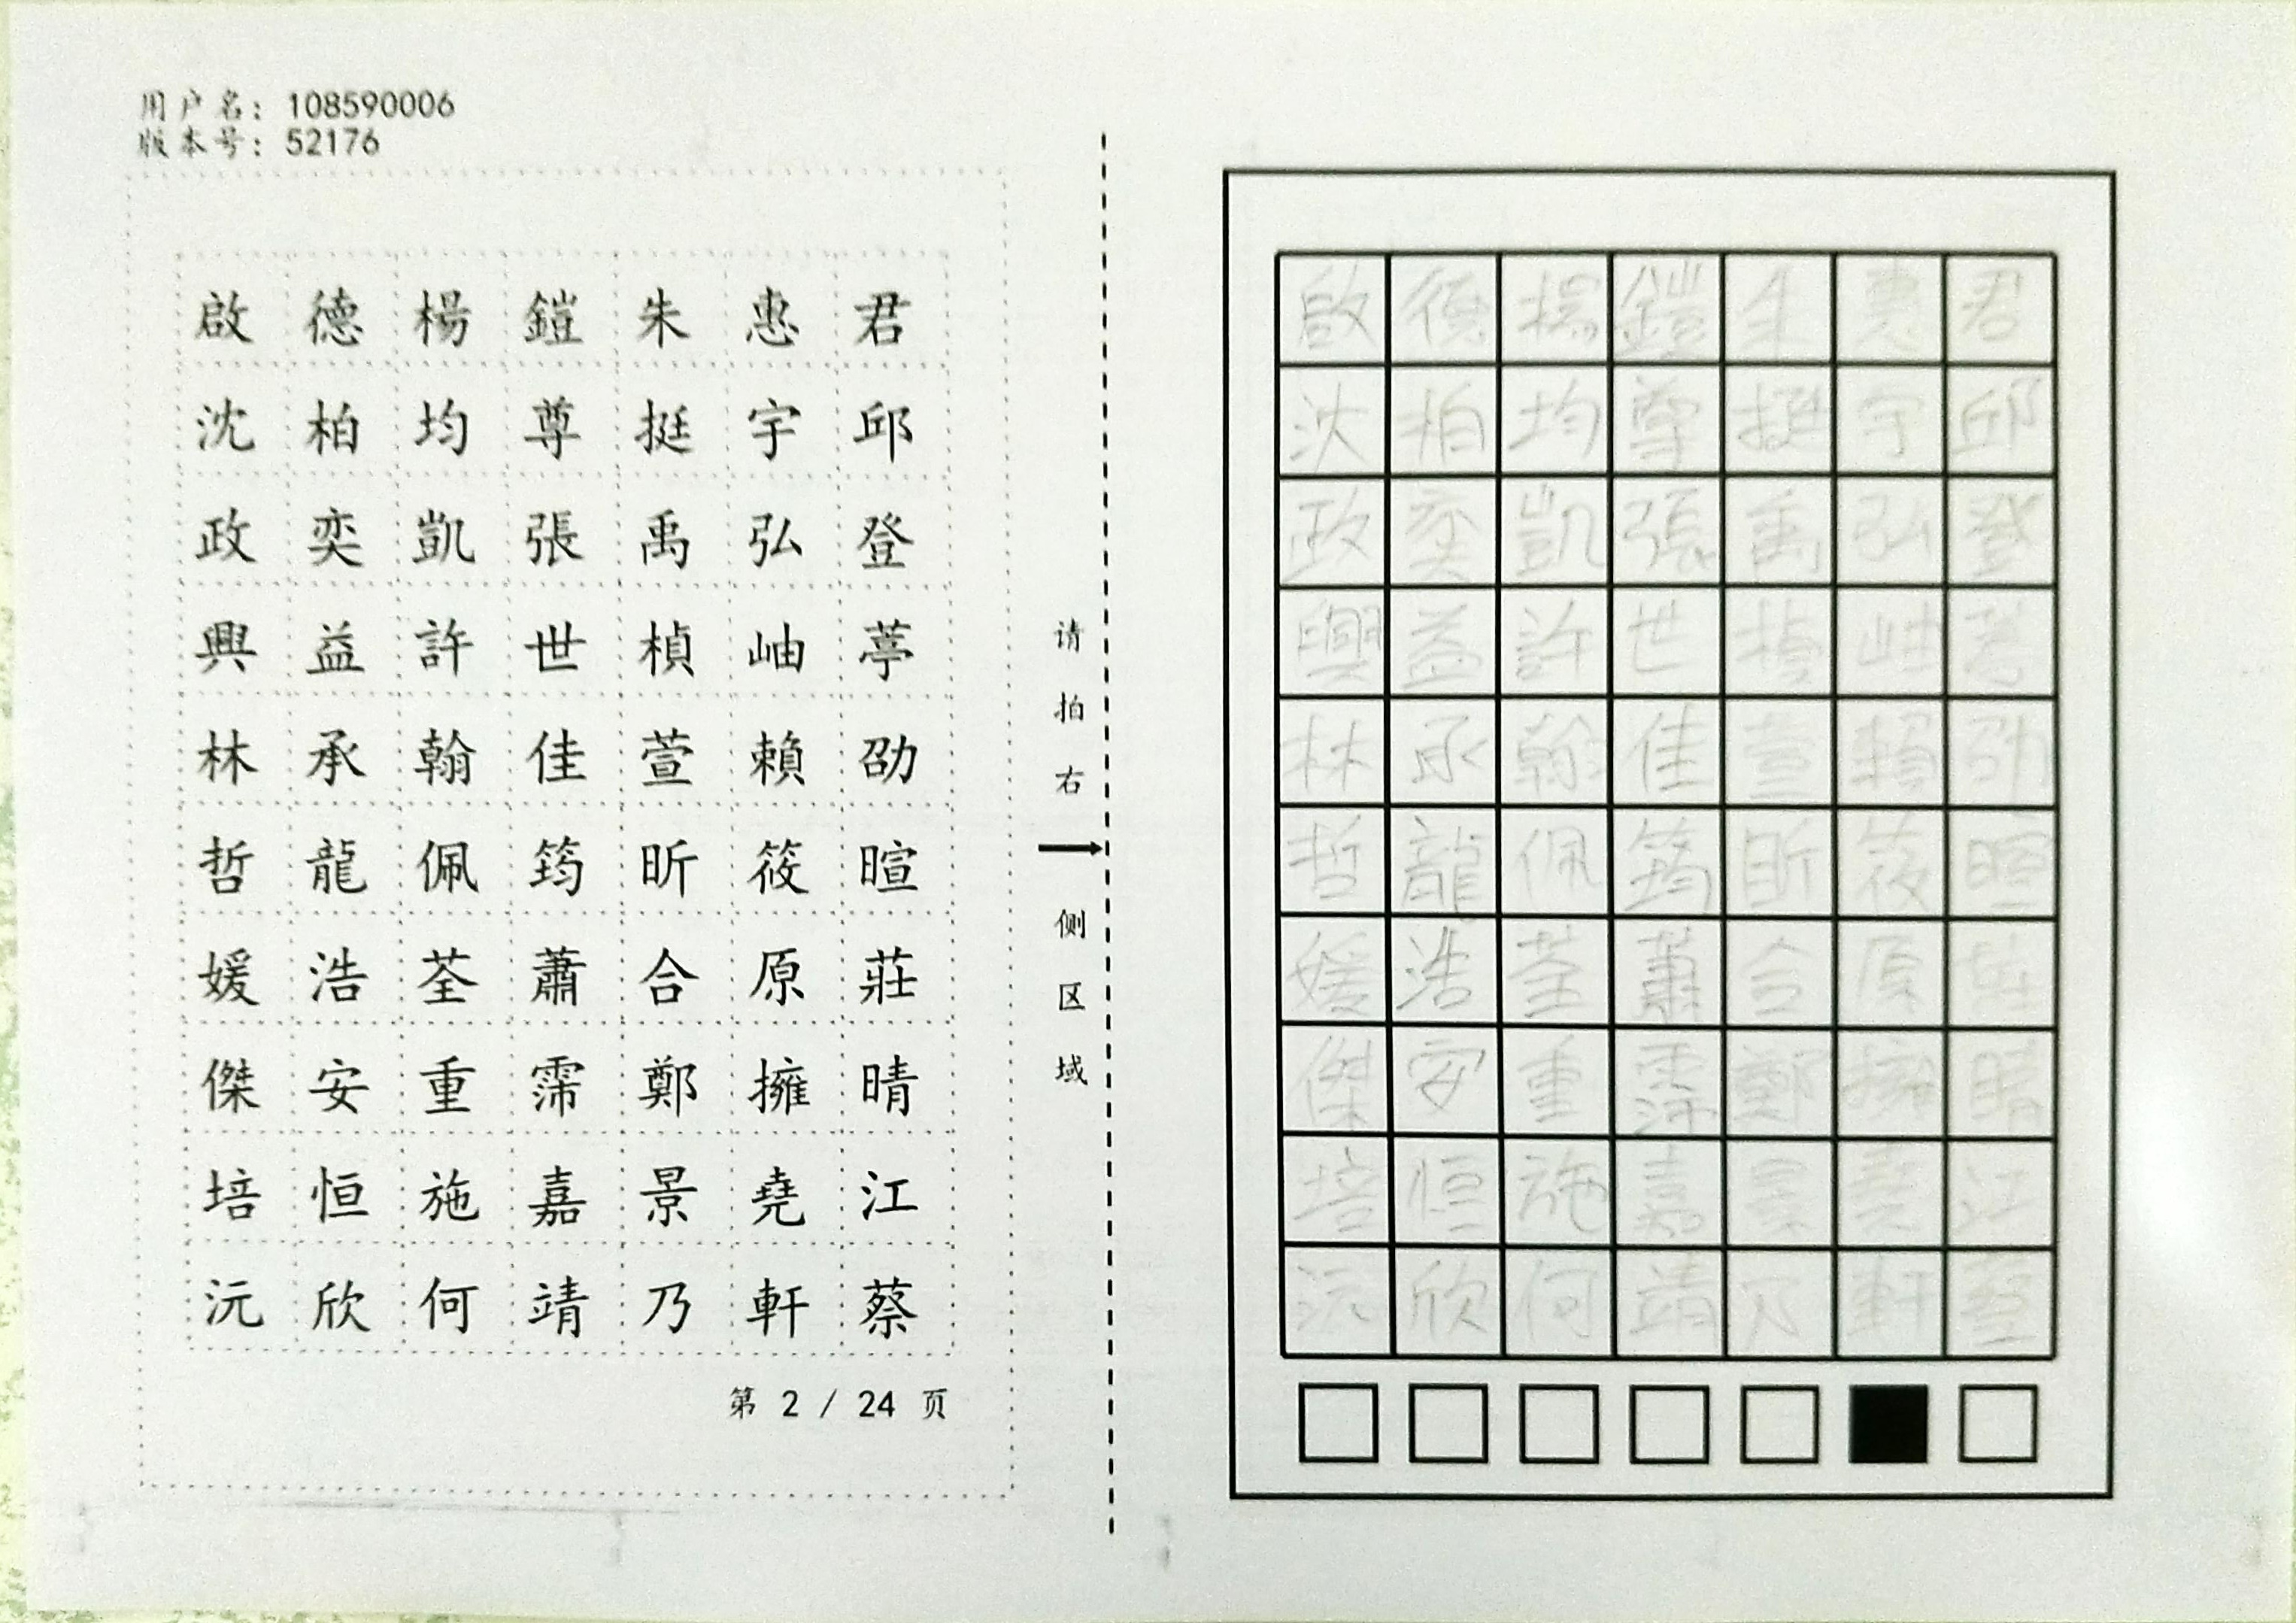 用户名: 108590006
版本号: 52176
啟德楊鎧朱惠君
沈柏均尊挺宇邱
政奕凱張禹弘登
興益許世楨岫葶
林承翰佳萱賴劭
哲龍佩筠昕筱暄
媛浩荃蕭合原莊
傑安重霈鄭擁晴
培恒施嘉景堯江
沅欣何靖乃軒蔡
第 2 / 24 页
请拍右
侧区域
啟德楊鎧朱惠君
沈柏均尊挺宇邱
政奕凱張禹弘登
興益許世楨岫
林承翰佳萱賴劭
哲龍佩筠昕筱暄
媛浩荃蕭合原莊
傑安重霈鄭擁晴
培恒施嘉景堯江
沅欣何靖乃軒蔡